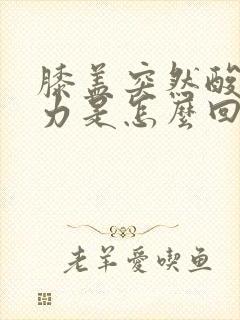 膝盖突然酸
力是怎麽回
老羊愛喫鱼